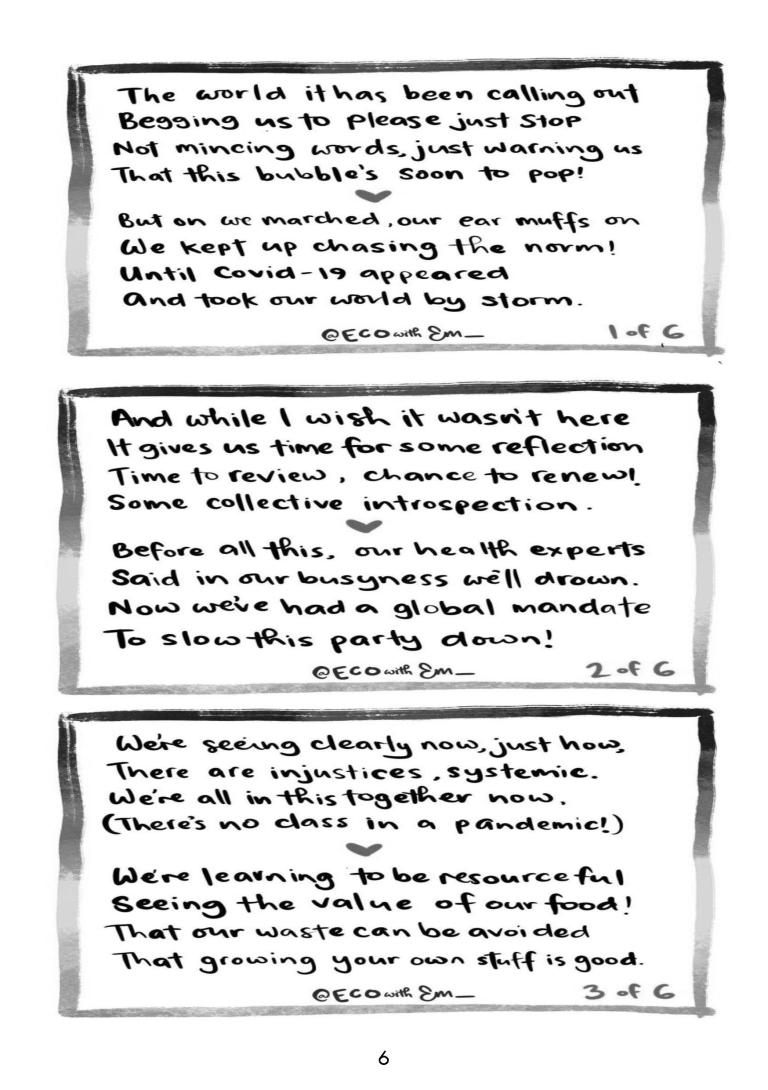 The world it has been calling out
Begging us to please just stop
Not mincing words, just warning us
That this bubble's soon to pop!
But on we marched, our ear muffs on
We kept up chasing the norm!
Until Covid-19 appeared
And took our world by storm.
@ECOwith Em_ 1 of 6
And while I wish it wasn't here
It gives us time for some reflection
Time to review, chance to renew!
Some collective introspection.
Before all this, our health experts
Said in our busyness we'll drown.
Now we've had a global mandate
To slow this party down!
@ECOwith Em_ 2 of 6
We're seeing clearly now, just how,
There are injustices, systemic.
We're all in this together now.
(There's no class in a pandemic!)
We're learning to be resourceful
Seeing the value of our food!
That our waste can be avoided
That growing your own stuff is good.
@ECOwith Em_ 3 of 6
6